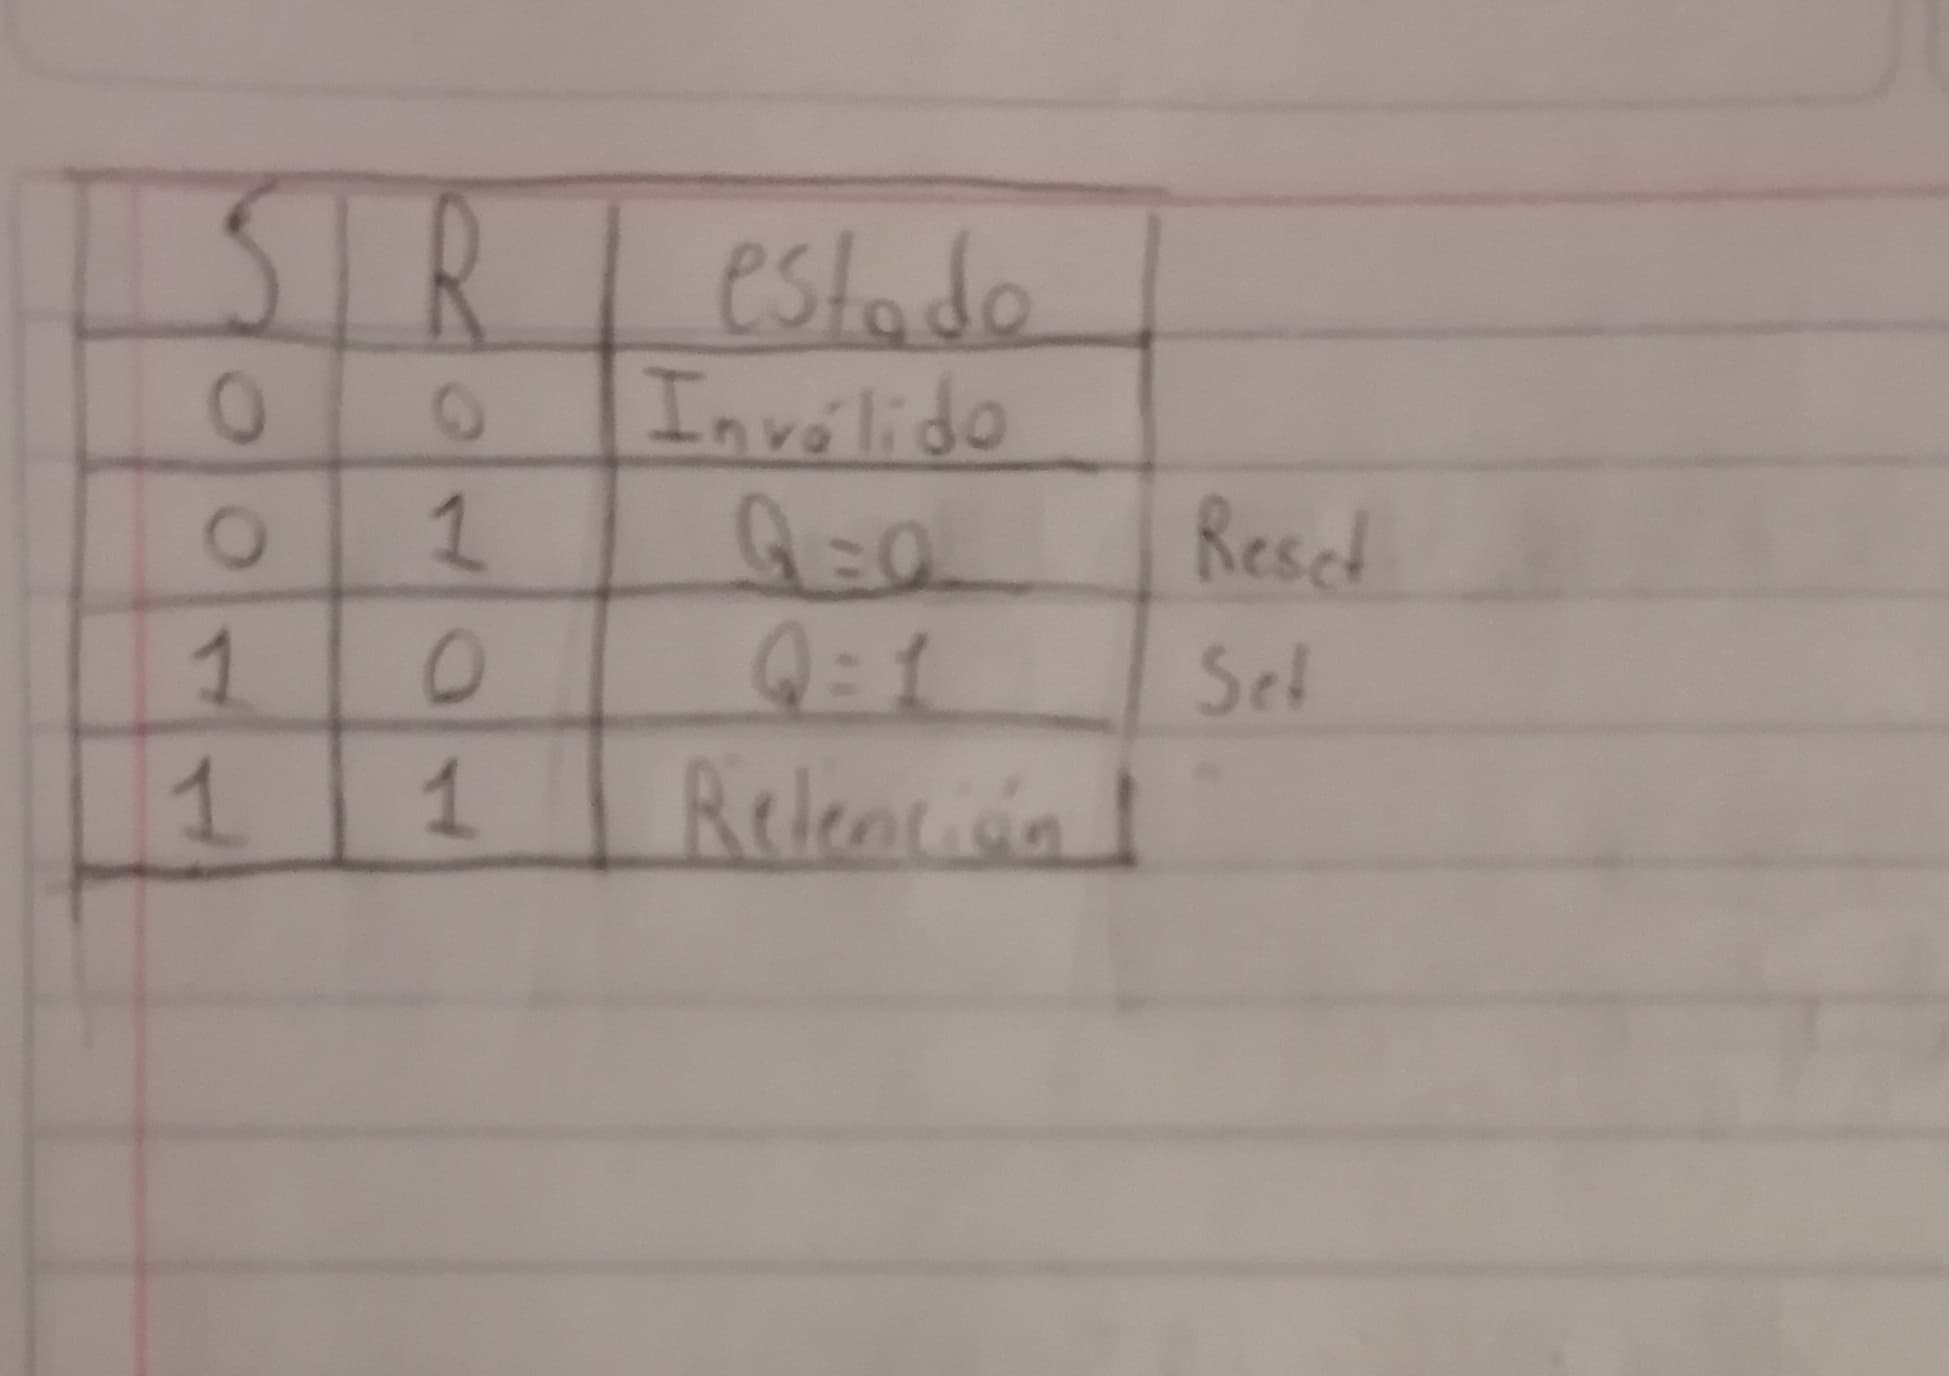 S R estado
0 0 Inválido
0 1 Q=0 Reset
1 0 Q=1 Set
1 1 Retención